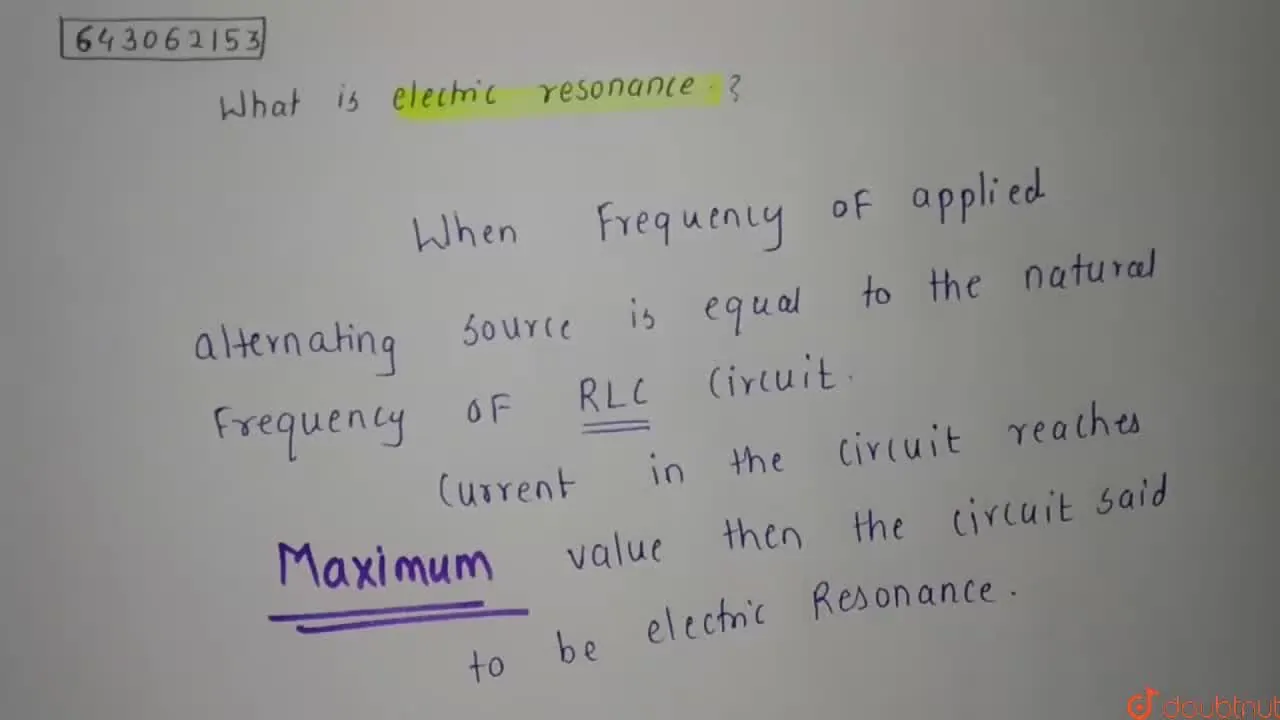 643062153
What is electric resonance. ?
When Frequency of applied
alternating source is equal to the natural
Frequency of RLC Circuit.
Current in the circuit reaches
Maximum value then the circuit said
to be electric Resonance.
doubtnut